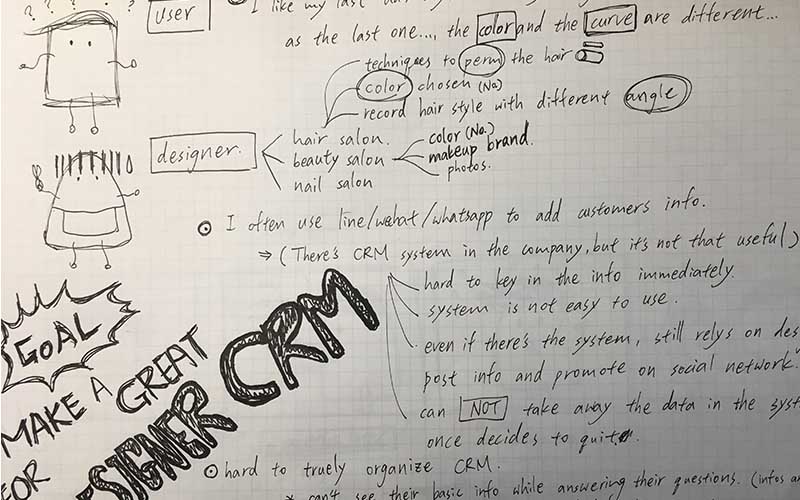 ? ? ? ? ? ?
user
I like my last
as the last one..., the color and the curve are different...
techniques to perm the hair
color chosen (No)
record hair style with different angle
designer.
hair salon.
beauty salon
nail salon
color (No.)
makeup brand.
photos.
I often use line/wechat/whatsapp to add customers info.
⇒ (There's CRM system in the company, but it's not that useful)
hard to key in the info immediately.
system is not easy to use.
even if there's the system, still relys on
post info and promote on social network.
can NOT take away the data in the
once decides to quit.
GOAL
MAKE A GREAT
CRM
FOR
hard to truely organize CRM.
* can't see their basic info while answering their questions. (infos